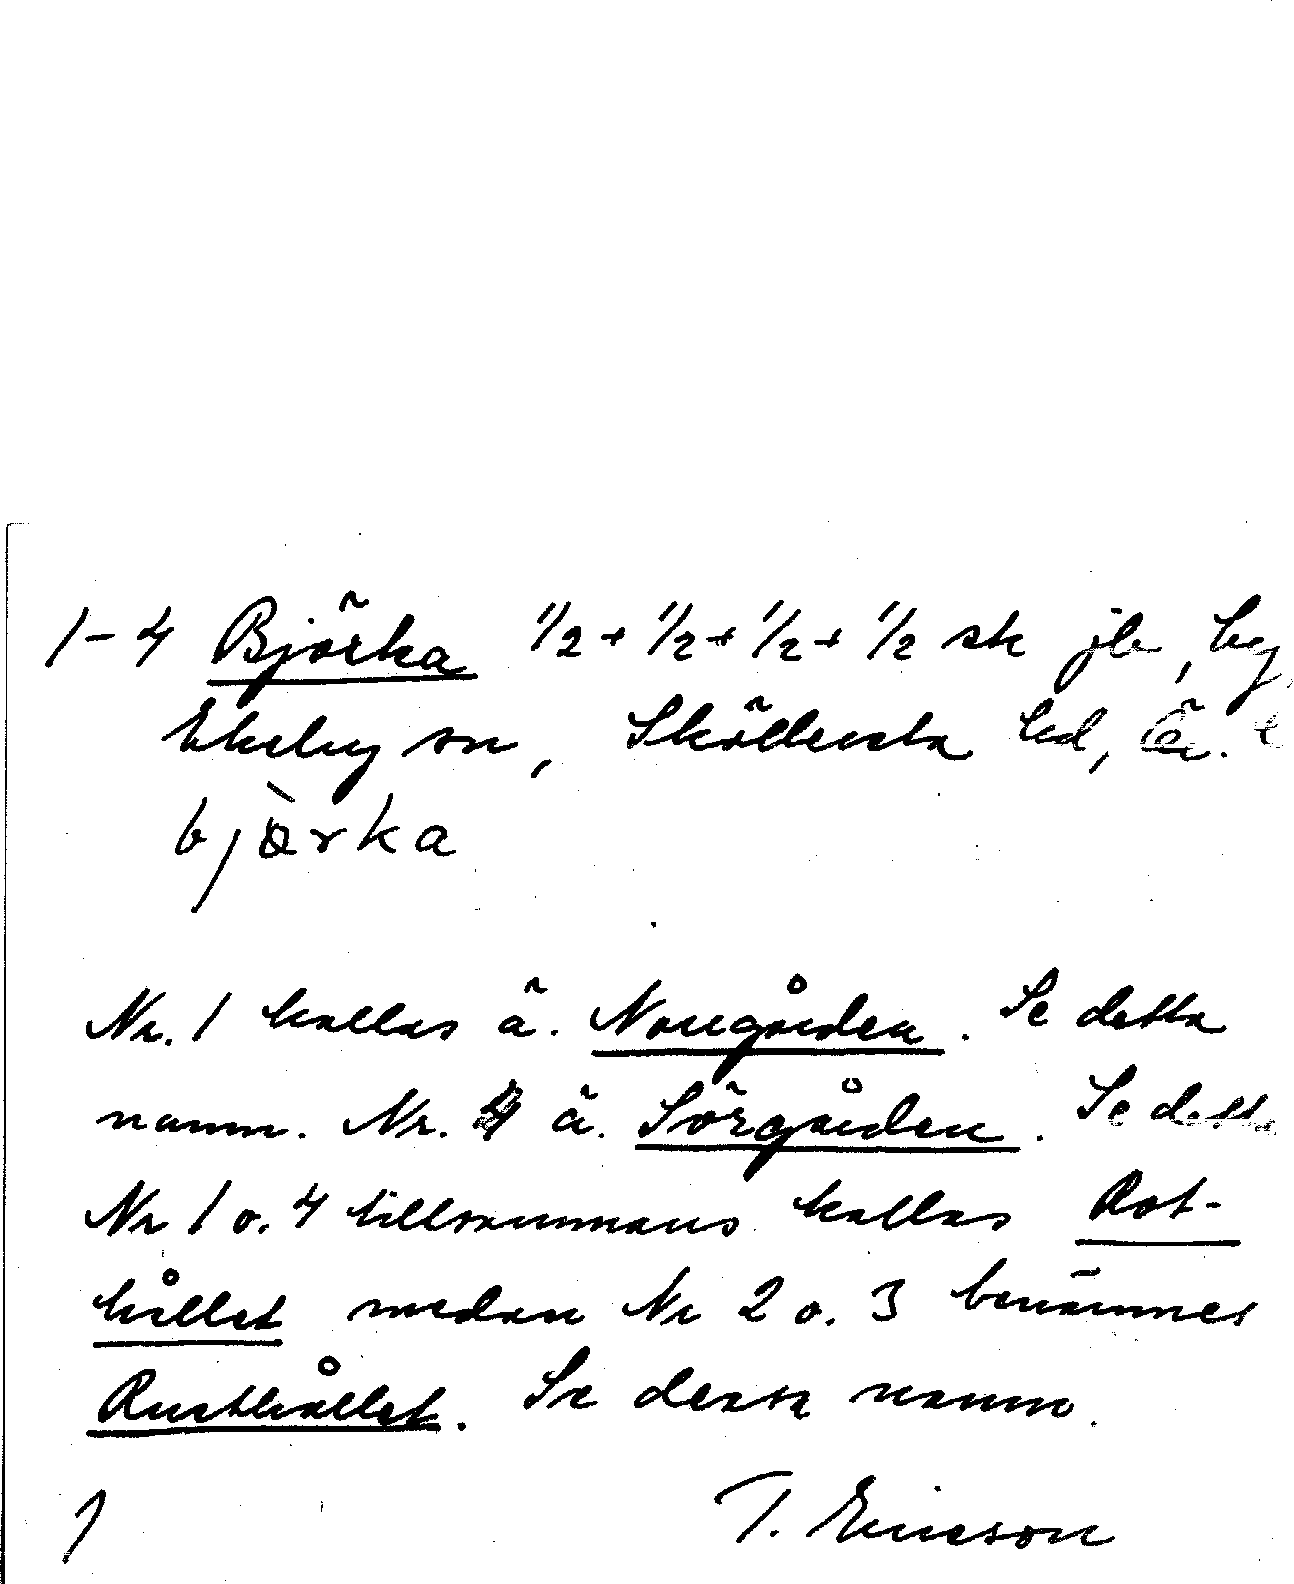 1-4 Björka 1/2 + 1/2 + 1/2 + 1/2 sk jb, by
Ekeby sn, Sköllersta hd, Ör.
bjàrka
Nr. 1 kallas ä. Norrgården. Se detta
namn. Nr. 4 ä. Sörgården. Se detta
Nr 1 o. 4 tillsammans kallas Rot-
hållet medan Nr 2 o. 3 benämnes
Rusthållet. Se dessa namn.
T. Ericson